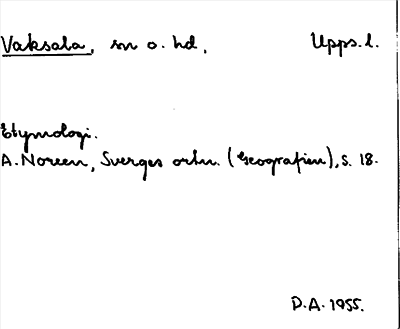 Vaksala, sn o. hd, Upps. l.
Etymologi.
A. Noreen, Sverges ortn. (Geografien), s. 18.
D.A. 1955.